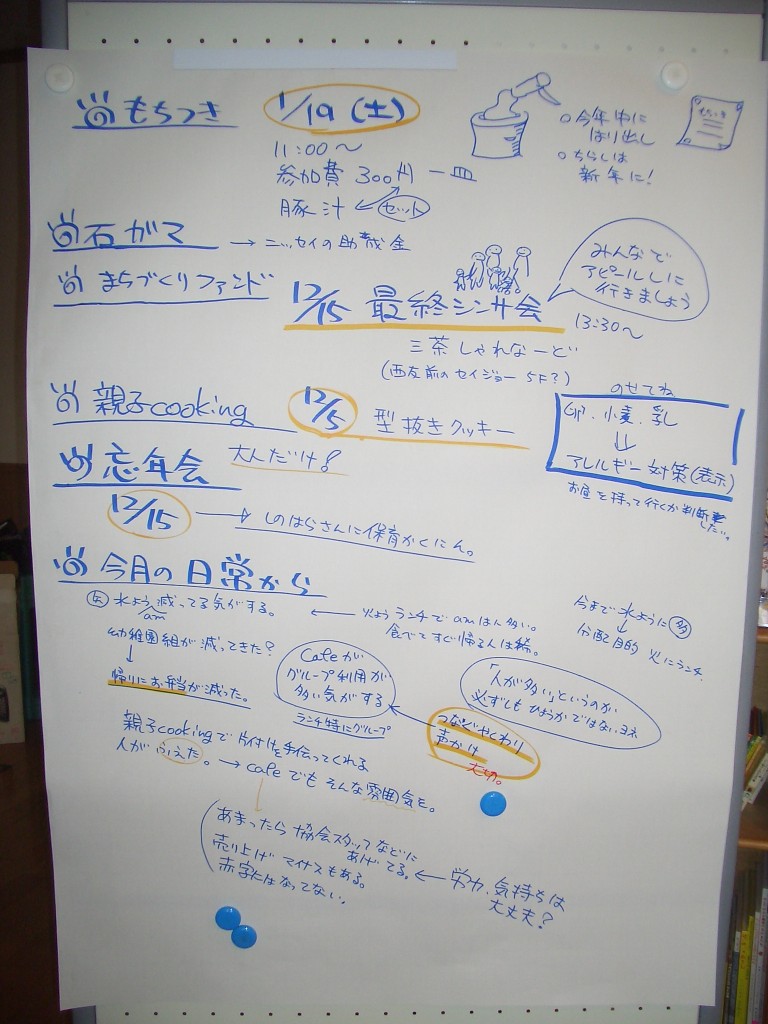 もちつき 1/19(土)
11:00〜
参加費 300円 一皿
豚汁 セット
○今年中に
はり出し
○ちらしは
新年に!
石ガマ → ニッセイの助成金
まちづくりファンド
12/15 最終シンサ会
みんなで
アピールしに
行きましょう
13:30〜
三茶しゃれなーど
(西友前のセイジョー 5F?)
親子cooking 12/5 型抜きクッキー
のせてね
卵、小麦、乳
↓
アレルギー対策(表示)
お昼を持って行くか判断したい。
忘年会 大人だけ!
12/15 → しのはらさんに保育かくにん。
今月の日常から
水よう減ってる気がする。
am
← 火ようランチで amはん多い。
食べてすぐ帰る人は稀。
今まで水ように 多
↓
分配目的 火にランチ
幼稚園組が減ってきた?
↓
帰りにお弁当が減った。
Cafeが
グループ利用が
多い気がする
ランチ特にグループ
「人が多い」というのが
必ずしもひょうかではないヨネ
つなぐやくわり
声かけ
大切。
親子cookingで片付けを手伝ってくれる
人がふえた。→ cafeでもそんな雰囲気を。
あまったら協会スタッフなどに
あげてる。
売り上げマイナスもある。
赤字にはなってない。
← 労力、気持ちは
大丈夫?